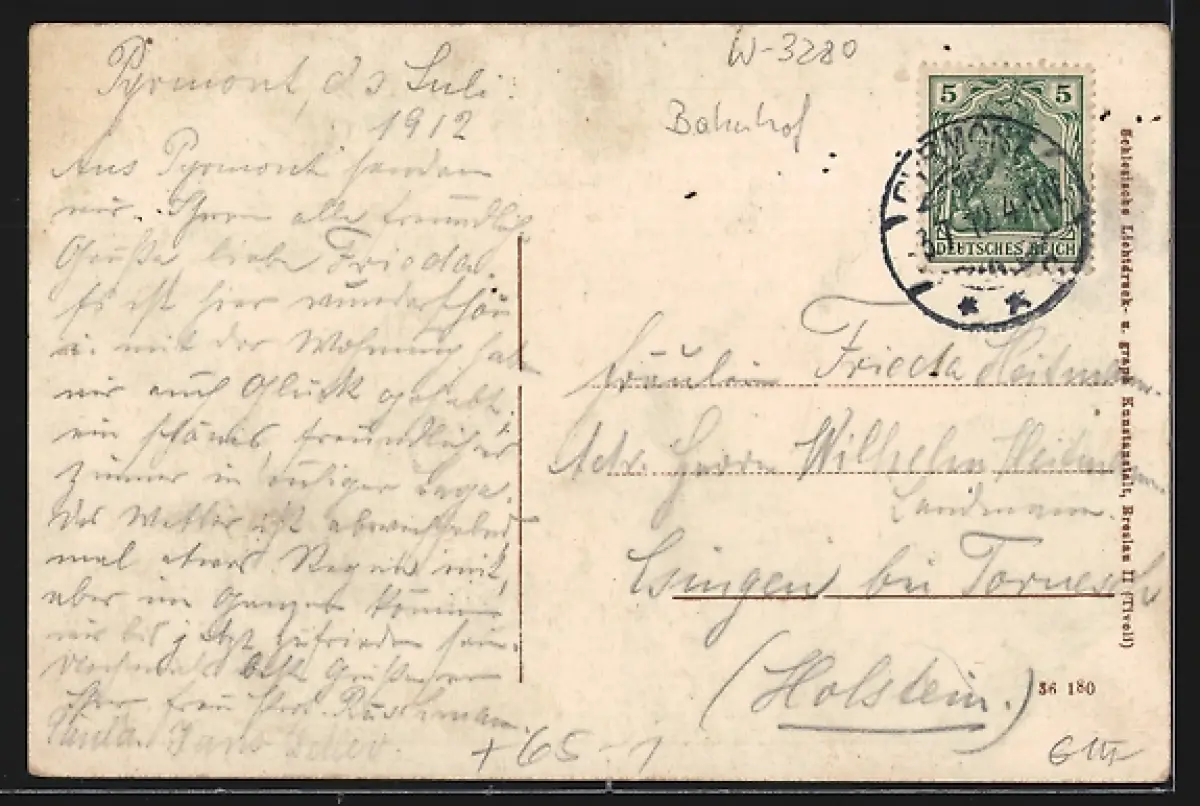 Pyrmont, d 3 Juli.
1912
W-3280
Bahnhof
Aus Pyrmont senden
wir Ihnen alle freundlich
Grüße liebe Frieda.
Es ist hier wunderschön
u. mit der Wohnung hab
wir auch Glück gehabt,
ein schönes, freundliches
Zimmer in ruhiger Lage.
Das Wetter ist abwechselnd
mal etwas Regen mit,
aber im Ganzen können
wir bis jetzt zufrieden sein.
beste Grüße
Ihre Frau
Paula. Hans
5 5
DEUTSCHES REICH
PYRMONT
3.7.12.4-5N
* *
Fräulein Frieda Heitmann.
Adr. Herrn Wilhelm Heitmann.
Landmann.
Esingen bei Tornesch
(Holstein.)
+65-1
36 180
Schlesische Lichtdruck- u. graph Kunstanstalt, Breslau II (Tivoli)